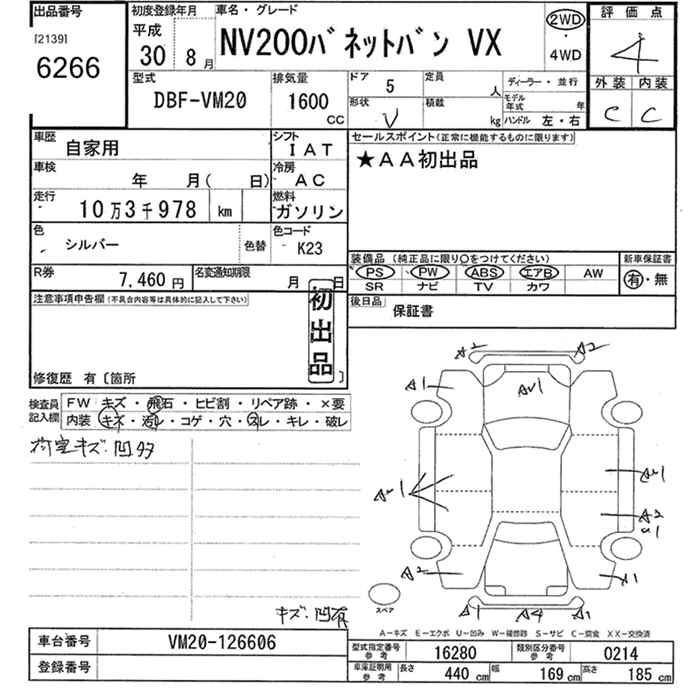 出品番号 初度登録年月 車名・グレード 評価点
[2139] 平成 2WD
6266 30 8月 NV200バネットバン VX 4
・
4WD
型式 排気量 ドア 5 定員 人 ディーラー・並行 外装 内装
DBF-VM20 1600 CC 形状 V 積載 kg モデル年式 年 C C
ハンドル 左・右
車歴 自家用 シフト IAT セールスポイント(正常に機能するものに限ります)
車検 年 月( 日) 冷房 AC ★AA初出品
走行 10万3千978 km 燃料 ガソリン
色 シルバー 色替 色コード K23
装備品(純正品に限り○をつけてください) 新車保証書
R券 7,460円 名変通知期限 月 日 PS PW ABS エアB AW 有・無
SR ナビ TV カワ
注意事項申告欄(不具合内容等は具体的に記入して下さい) 初出品 後日品 保証書
修復歴 有〔箇所 〕
検査員記入欄 FW キズ・飛石・ヒビ割・リペア跡・×要
内装 キズ・汚レ・コゲ・穴・スレ・キレ・破レ
荷室キズ.凹多
A2 A2
A1 AU1
AU1 AU1
A2
U1
A2 A1
スペア
キズ.凹有 A1 A4 A1
A－キズ E－エクボ U－凹み W－補修跡 S－サビ C－腐食 XX－交換済
車台番号 VM20-126606 型式指定番号 参考 16280 類別区分番号 参考 0214
登録番号 車庫証明用 参考 長さ 440 cm 幅 169 cm 高さ 185 cm